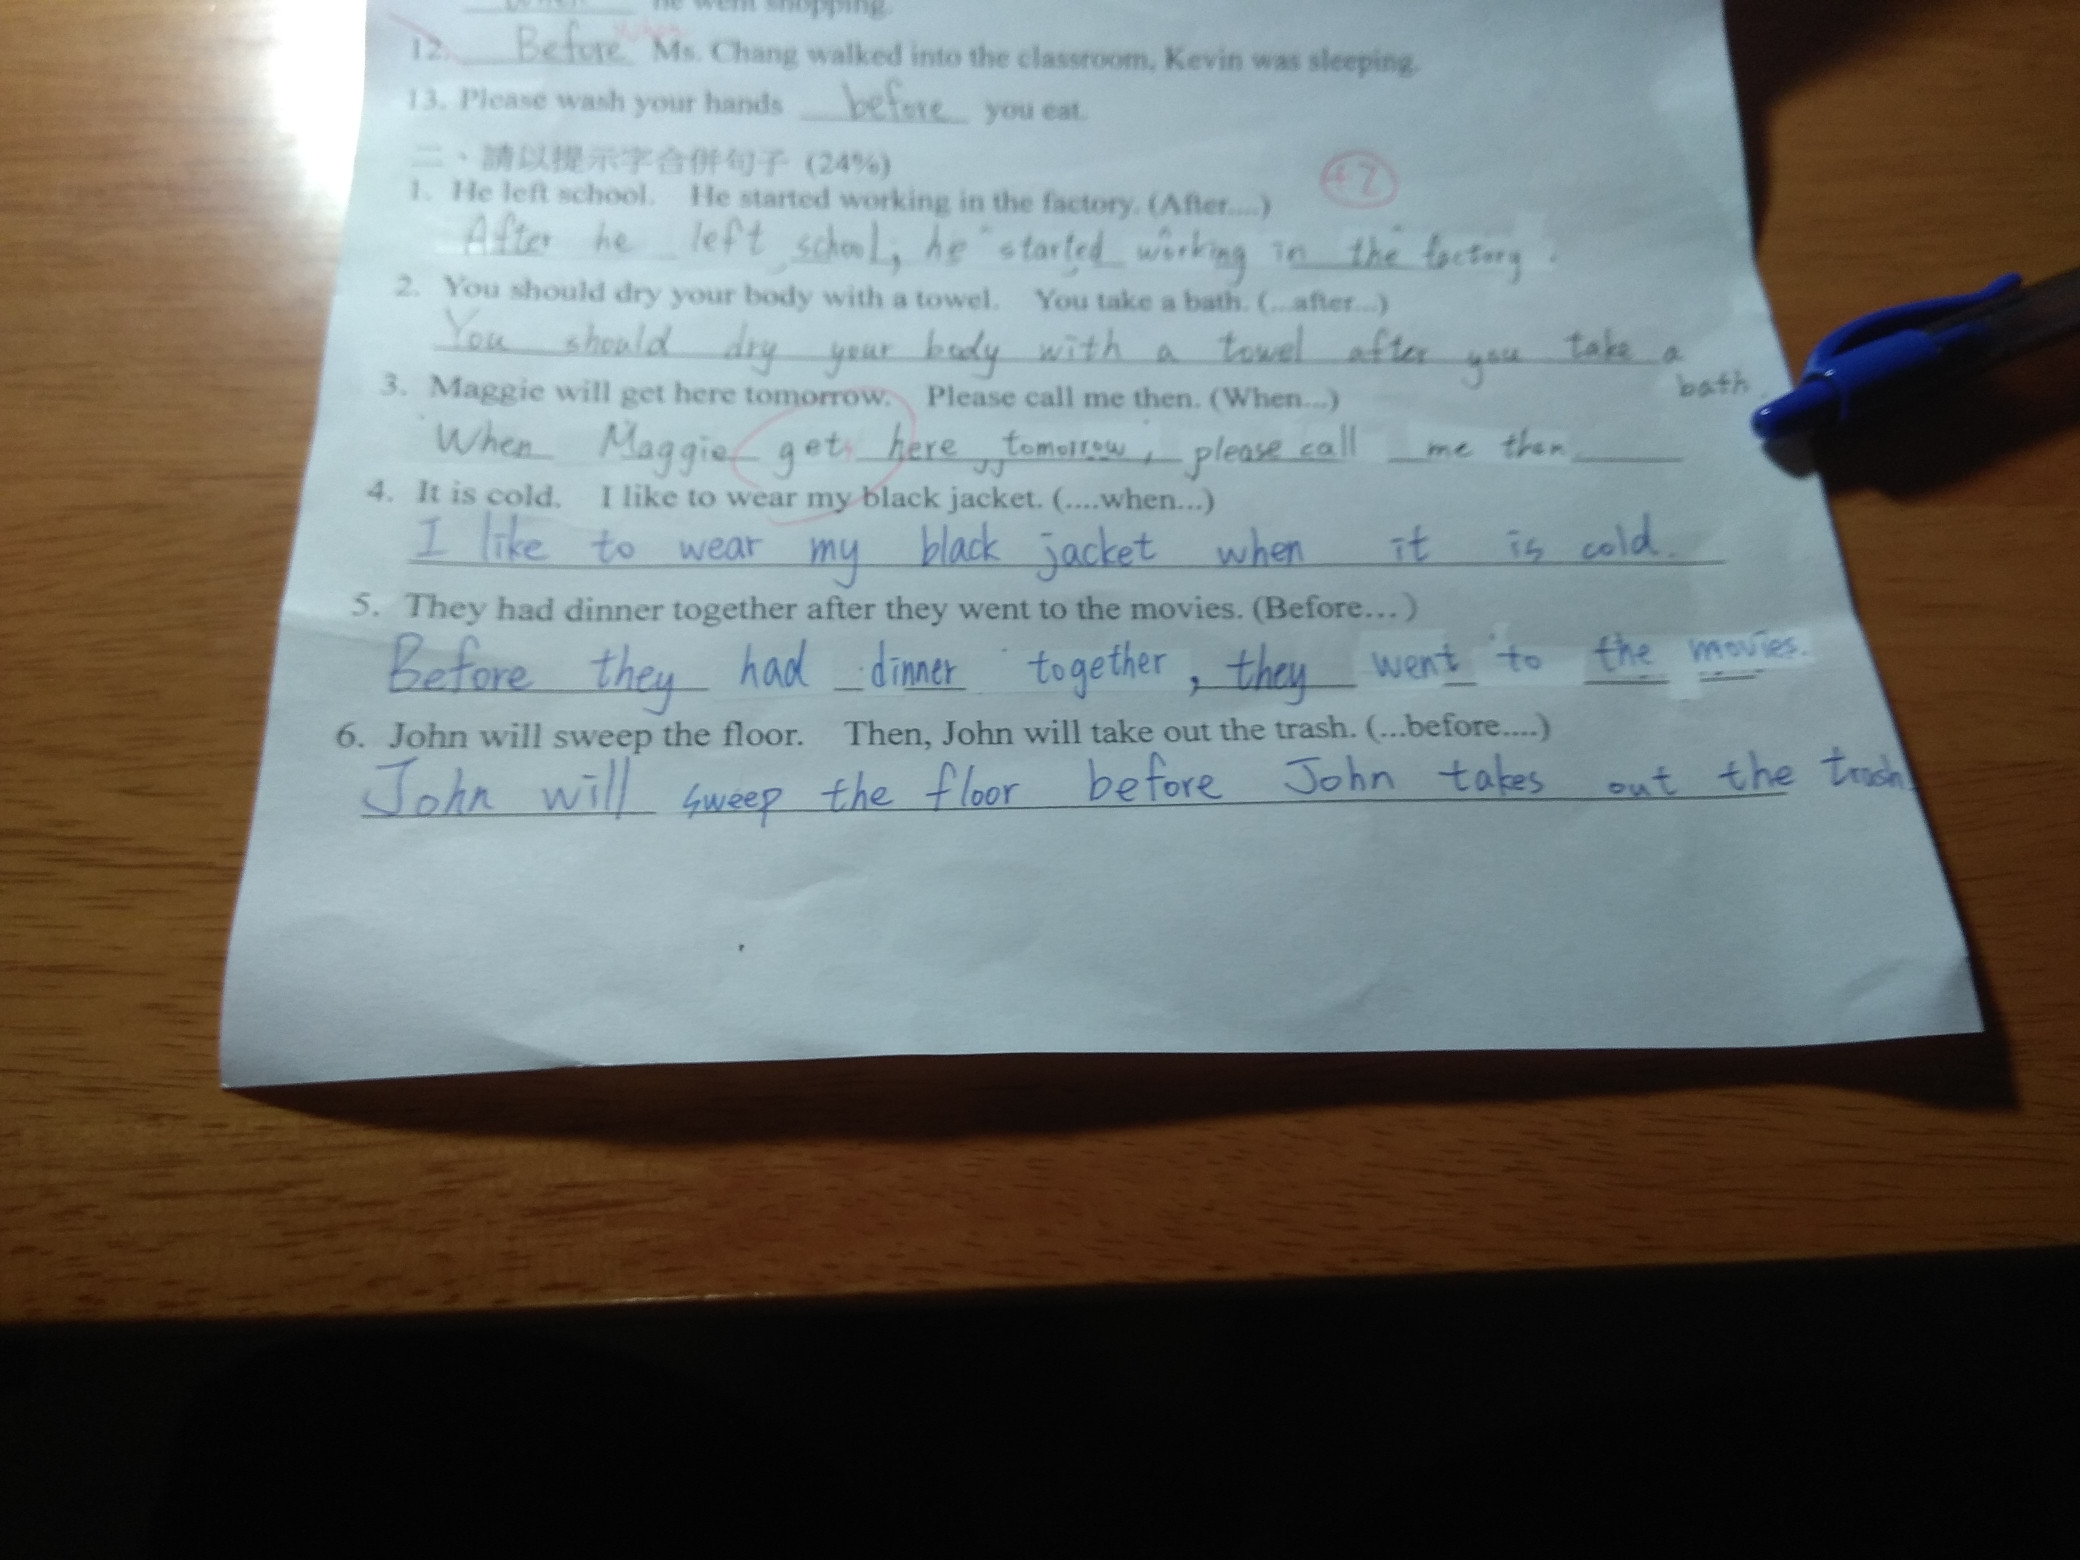 he went shopping.
12. Before When Ms. Chang walked into the classroom, Kevin was sleeping.
13. Please wash your hands before you eat.
二、請以提示字合併句子 (24%)
1. He left school. He started working in the factory. (After....)
After he left school, he started working in the factory.
2. You should dry your body with a towel. You take a bath. (...after...)
You should dry your body with a towel after you take a
bath.
3. Maggie will get here tomorrow. Please call me then. (When...)
When Maggie gets here tomorrow, please call me then.
4. It is cold. I like to wear my black jacket. (....when...)
I like to wear my black jacket when it is cold.
5. They had dinner together after they went to the movies. (Before... )
Before they had dinner together, they went to the movies.
6. John will sweep the floor. Then, John will take out the trash. (...before....)
John will sweep the floor before John takes out the trash.